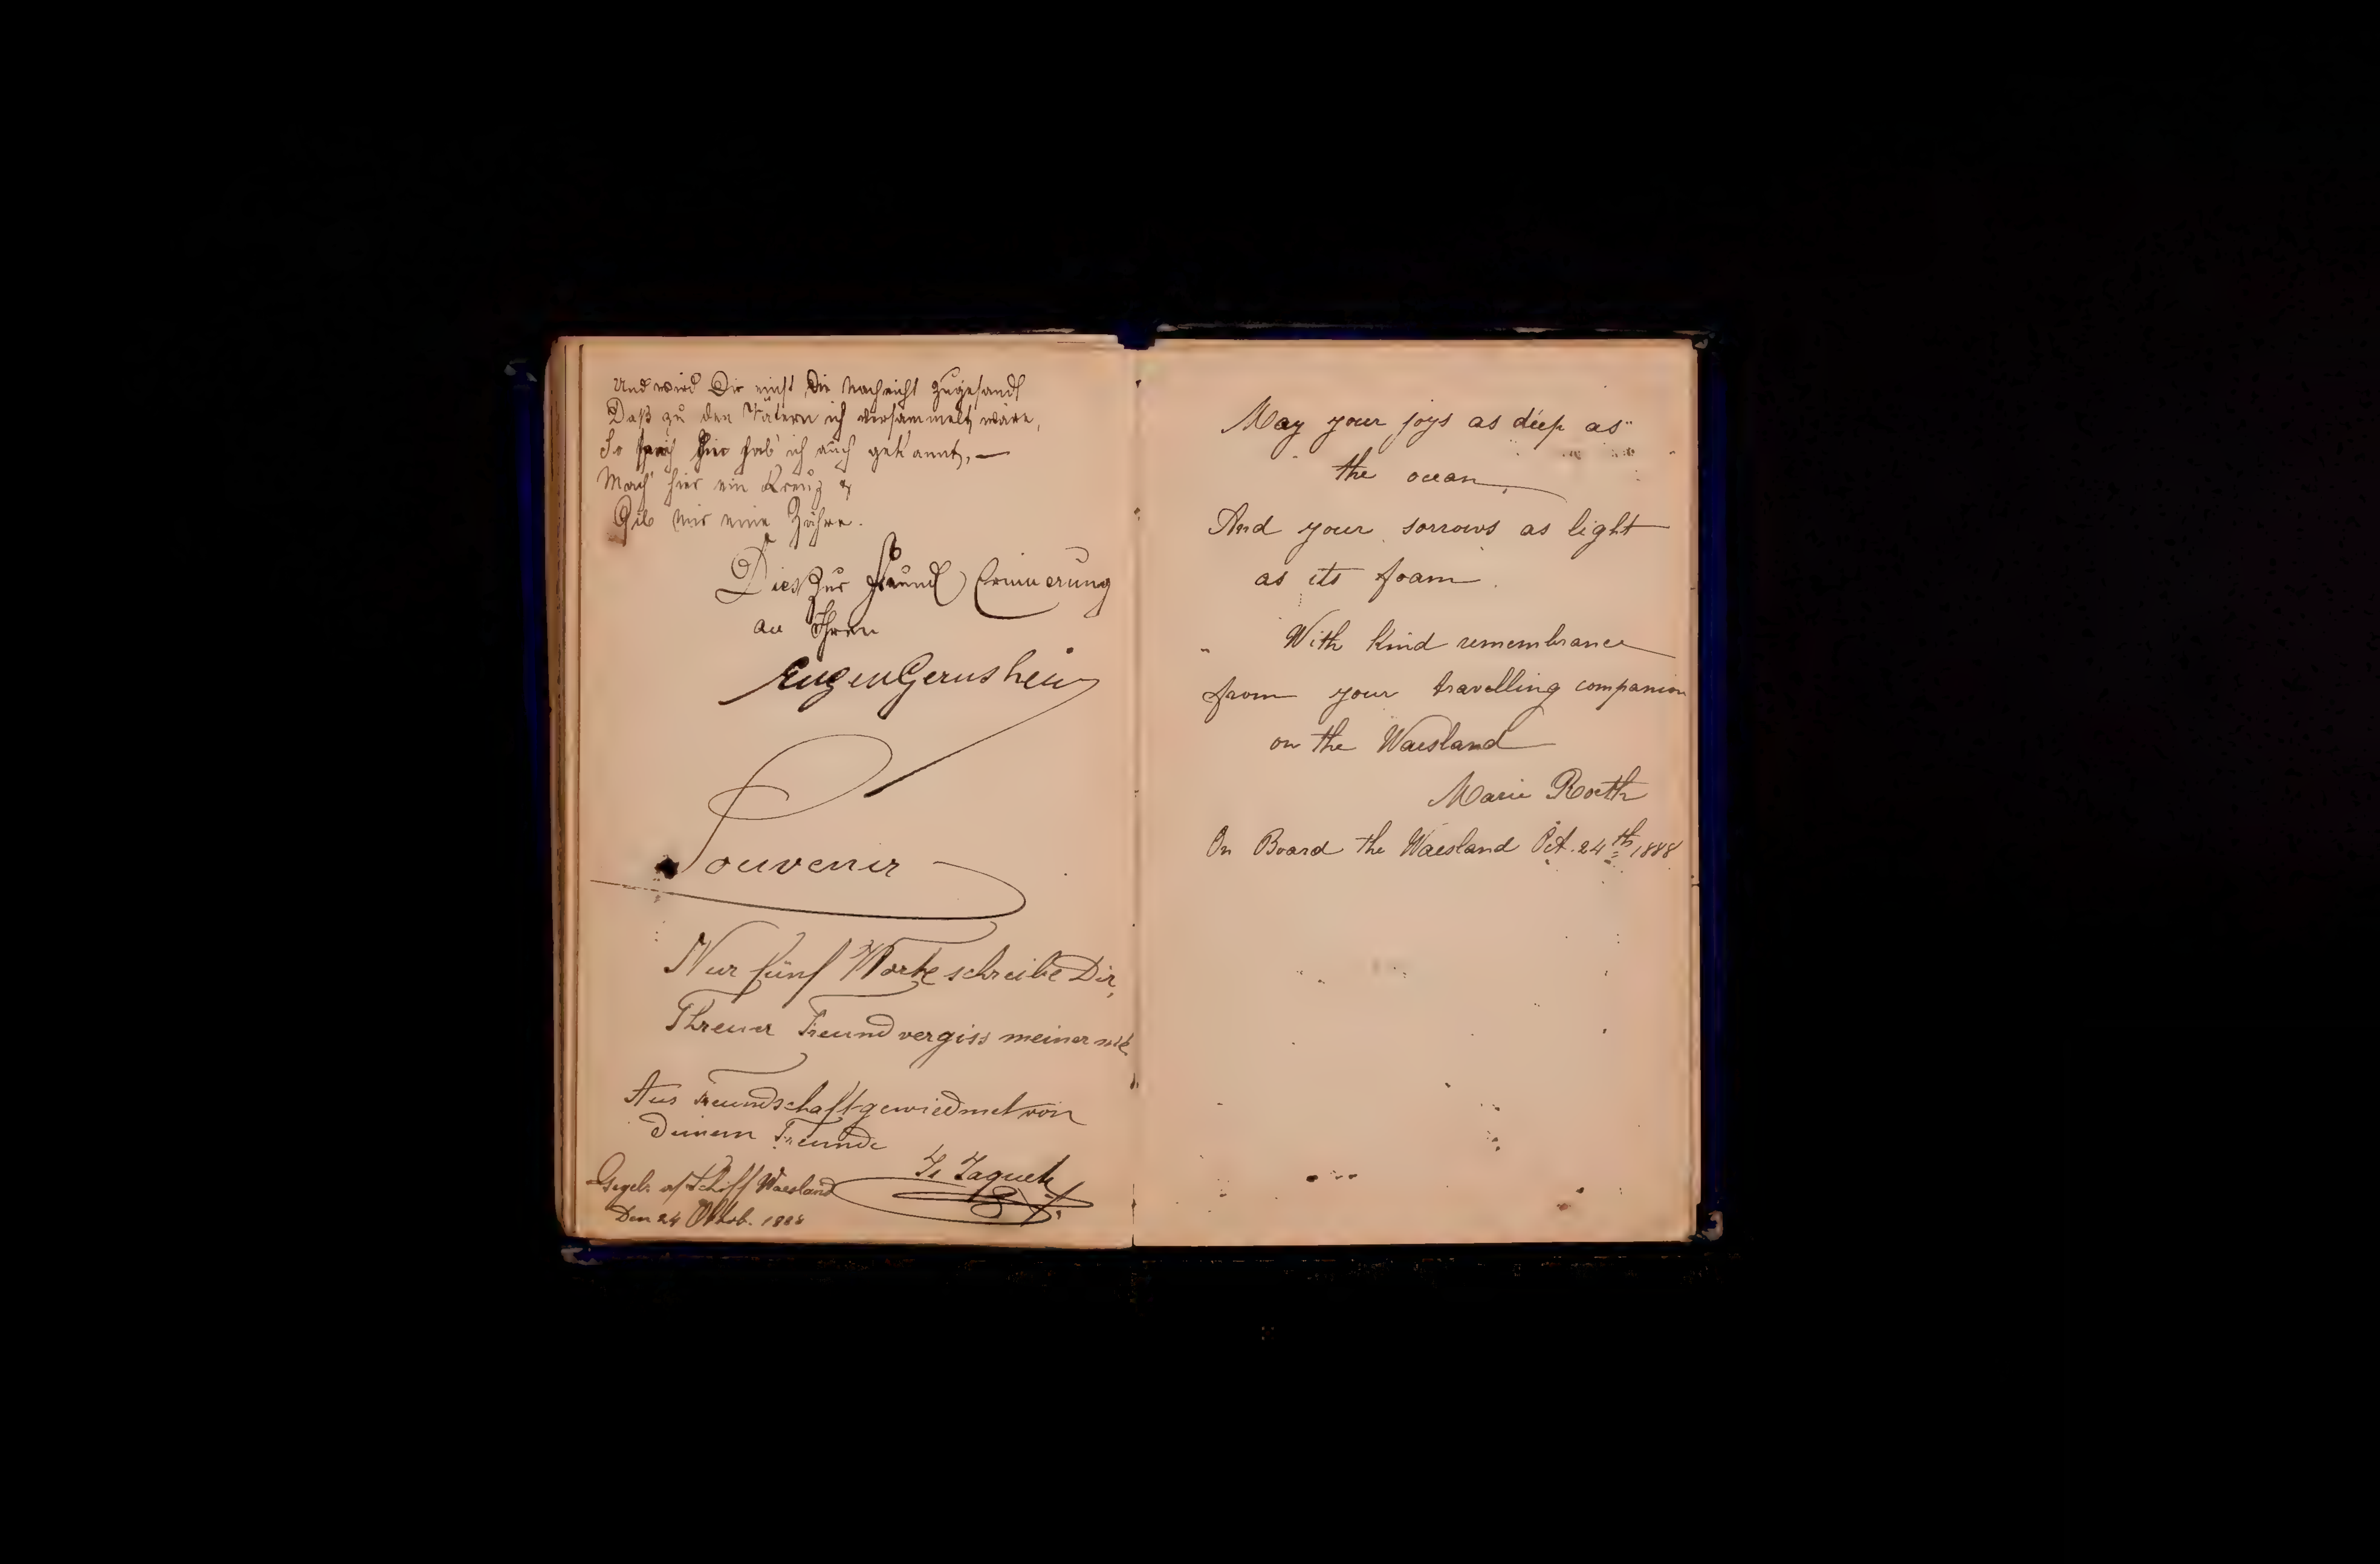 Und wird Dir einst die Nachricht zugesandt
Daß zu den Vätern ich versammelt wäre,
So sprich hier hab' ich auch gekannt, —
Mach' hier ein Kreuz &
Gib mir eine Zähre.
Dies zur freundl Erinnerung
an Ihren
Eugen Gernsheim
Souvenir
Nur fünf Worte schreibe Dir,
Threuer Freund vergiss meiner nie
Aus Freundschaft gewiedmet von
deinem Freunde
Gegeb. a/ Schiff Waesland
Den 24 Oktob. 1888
May your joys as deep as
the ocean,
And your sorrows as light
as its foam.
With kind remembrance
from your travelling companion
on the Waesland
Marie Roeth
On Board the Waesland Oct. 24th 1888